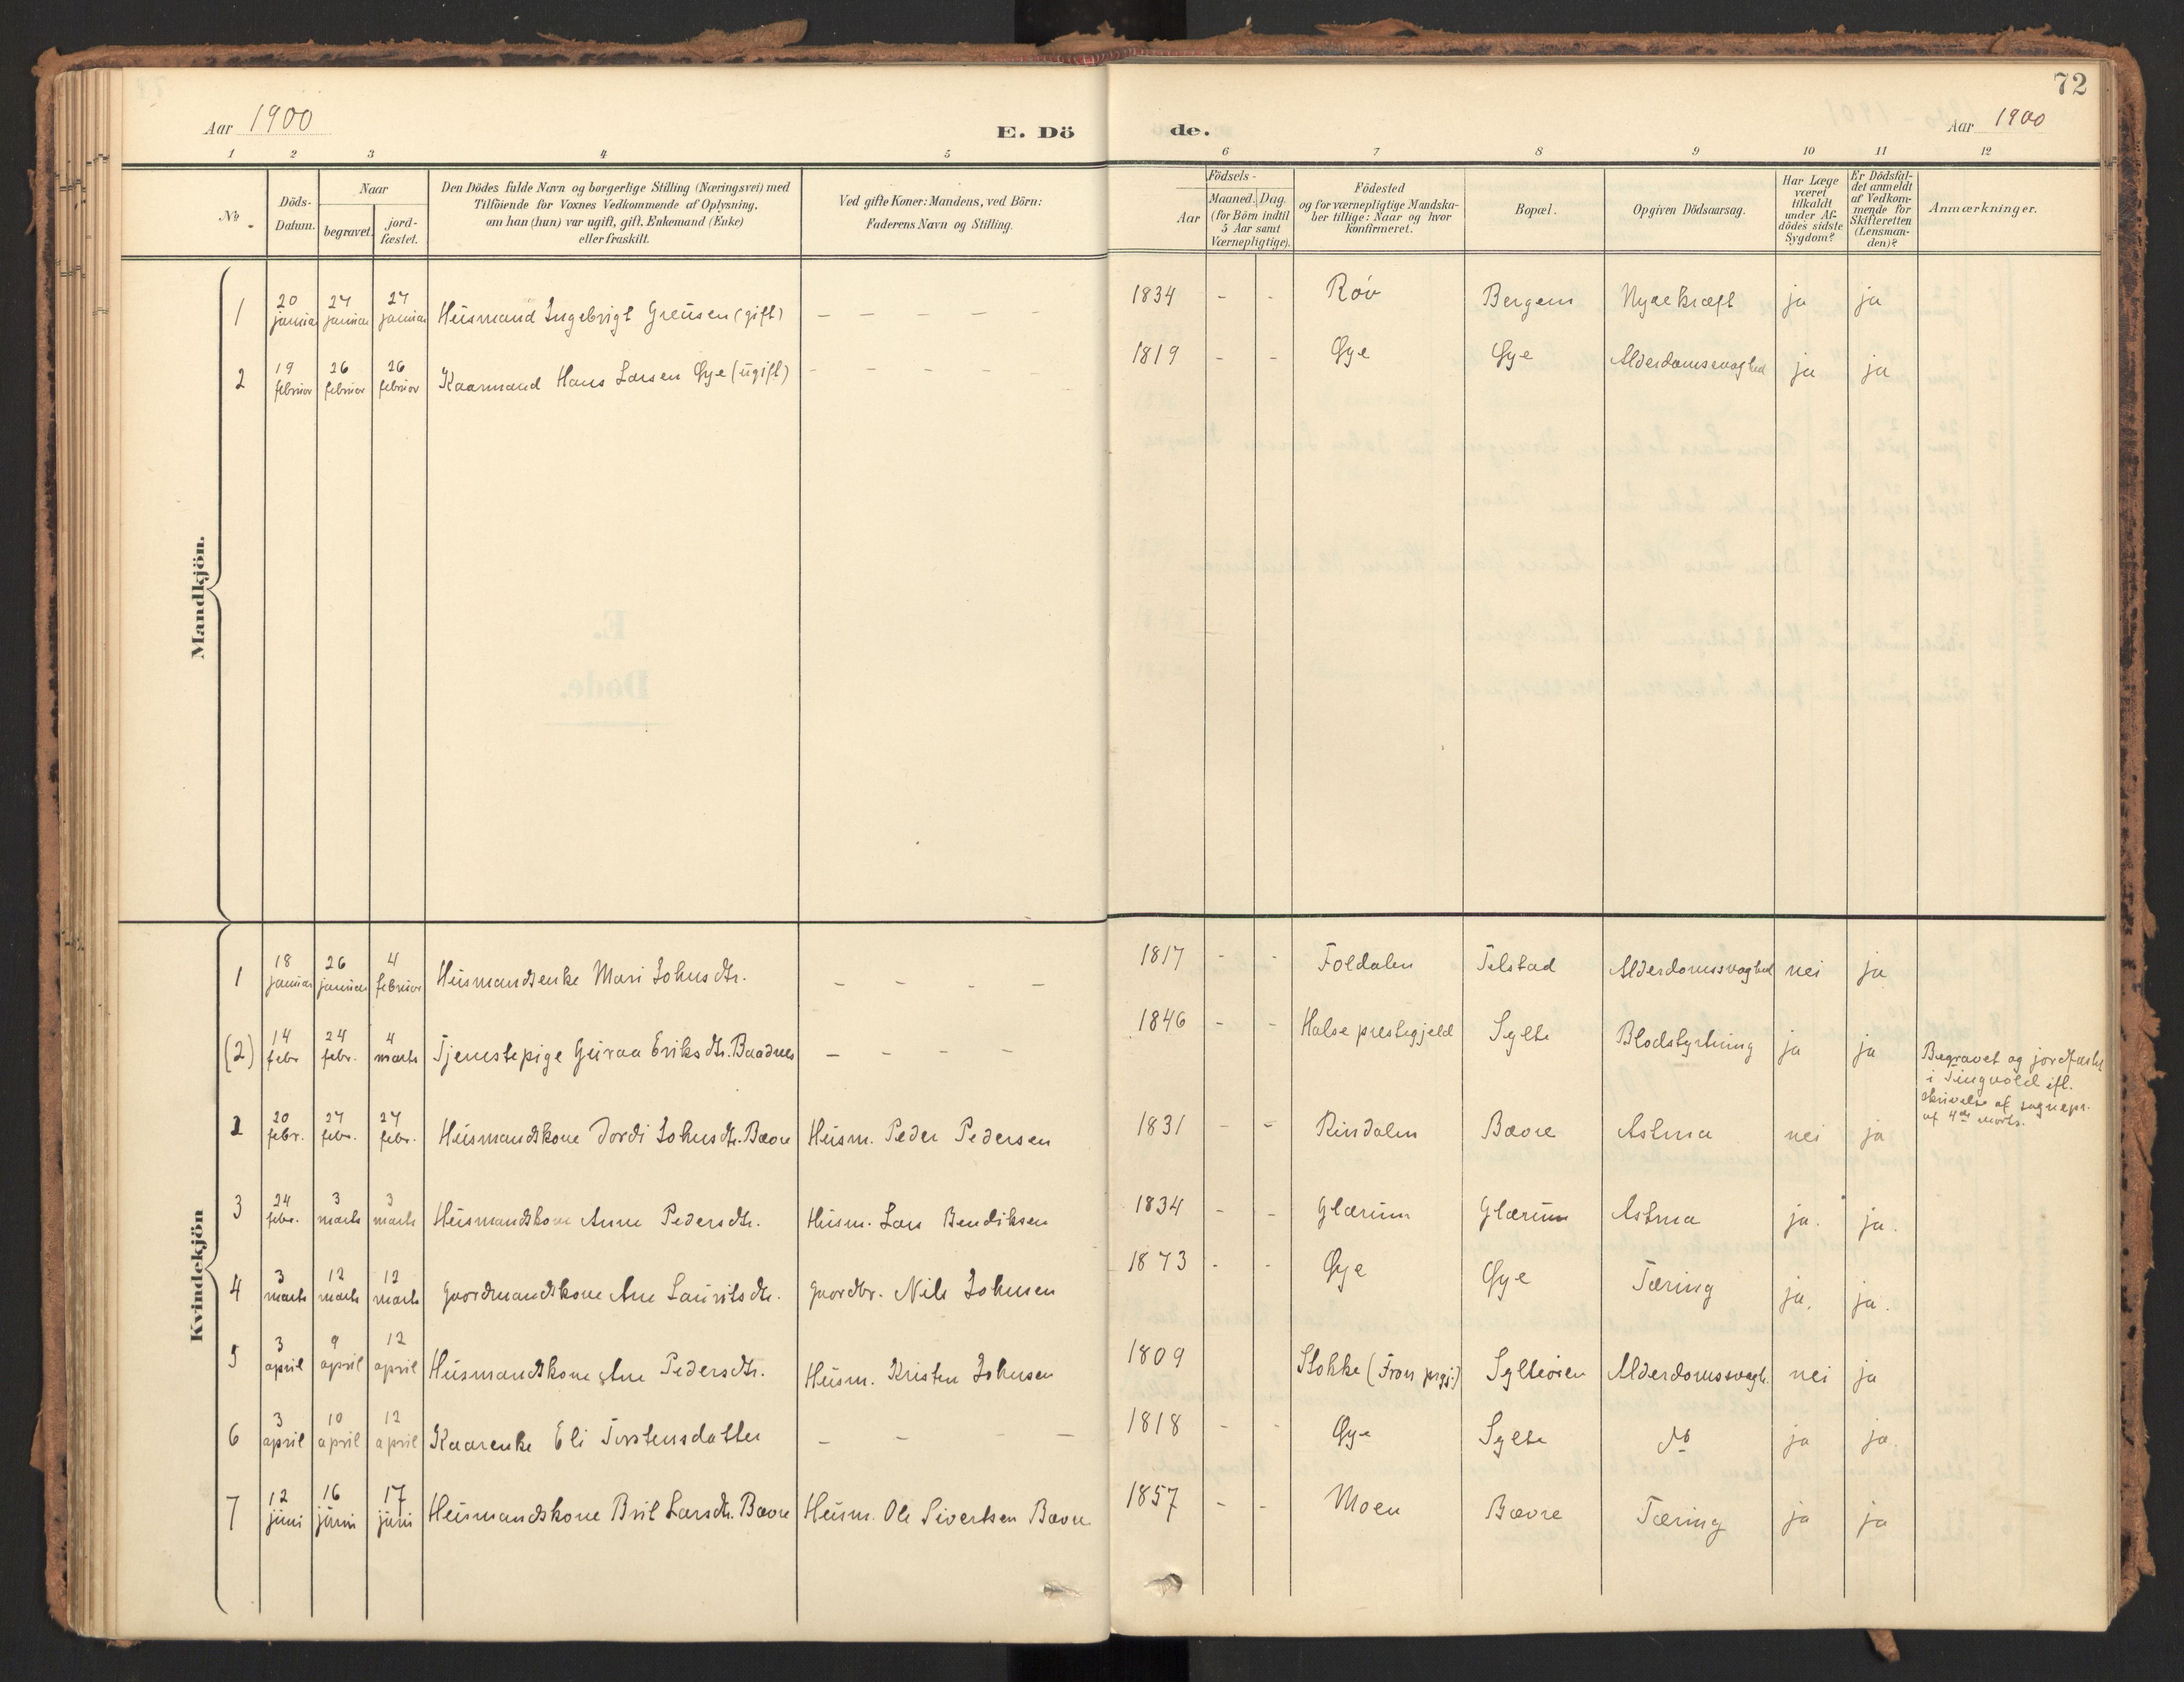 72
Aar 1900
E. Dö
de.
Aar 1900
1 2 3 4 5 6 7 8 9 10 11 12
No
Döds-
Datum.
Naar
begravet.
jord-
fæstet.
Den Dödes fulde Navn og borgerlige Stilling (Næringsvei) med
Tilföiende for Voxnes Vedkommende af Oplysning,
om han (hun) var ugift, gift, Enkemand (Enke)
eller fraskilt.
Ved gifte Koner: Mandens, ved Börn:
Faderens Navn og Stilling.
Födsels-
Aar
Maaned. Dag.
(for Börn indtil
5 Aar samt
Værnepligtige).
Födested
og for værnepligtige Mandska-
ber tillige: Naar og hvor
konfirmeret.
Bopæl.
Opgiven Dödsaarsag.
Har Læge
været
tilkaldt
under Af-
dödes sidste
Sygdom?
Er Dödsfal-
det anmeldt
af Vedkom-
mende for
Skifteretten
(Lensman-
den)?
Anmærkninger.
Mandkjön.
1 20 januar 27 januar 27 januar Husmand Ingebrigt Greusen (gift) – – – – – 1834 - - Röv Bergem Nyrekræft ja ja
2 19 februar 26 februar 26 februar Kaarmand Hans Larsen Øye (ugift) - - - - - 1819 - - Øye Øye Alderdomssvaghed ja ja
Kvindekjön
1 18 januar 26 januar 4 februar Husmandsenke Mari Johnsdtr. - - - - 1817 - - Foldalen Telstad Alderdomssvaghed nei ja
(2) 14 febr 24 febr. 4 marts Tjenestepige Guraa Eriksdtr. Baadnes - - - - 1846 - - Halse prestegjeld Sylte Blodstyrtning ja ja Begravet og jordfæstet
i Tingvold ifl.
skrivelse af sognepr.
af 4de marts.
2 20 febr. 27 febr. 27 febr. Husmandskone Dordi Johnsdtr. Bævre Husm. Peder Pedersen 1831 - - Rindalen Bævre Astma nei ja
3 24 febr. 3 marts 3 marts Husmandskone Anne Pedersdtr. Husm. Lars Bendiksen 1834 - - Glærum Glærum Astma ja. ja.
4 3 marts 12 marts 12 marts Gaardmandskone Ane Lauritsdtr. Gaardbr. Nils Johnsen 1873 - - Øye Øye Tæring ja. ja.
5 3 april 9 april 12 april Husmandskone Ane Pedersdtr. Husm. Kristen Johnsen 1809 Stokke (Fron prgj.) Sylteören Alderdomssvagh. nei ja
6 3 april 10 april 12 april Kaarenke Eli Torstensdatter - - - - 1818 - - Øye Sylte do ja ja.
7 12 juni 16 juni 17 juni Husmandskone Brit Larsdtr. Bævre Husm. Ole Sivertsen Bævre 1857 - - Moen Bævre Tæring ja ja